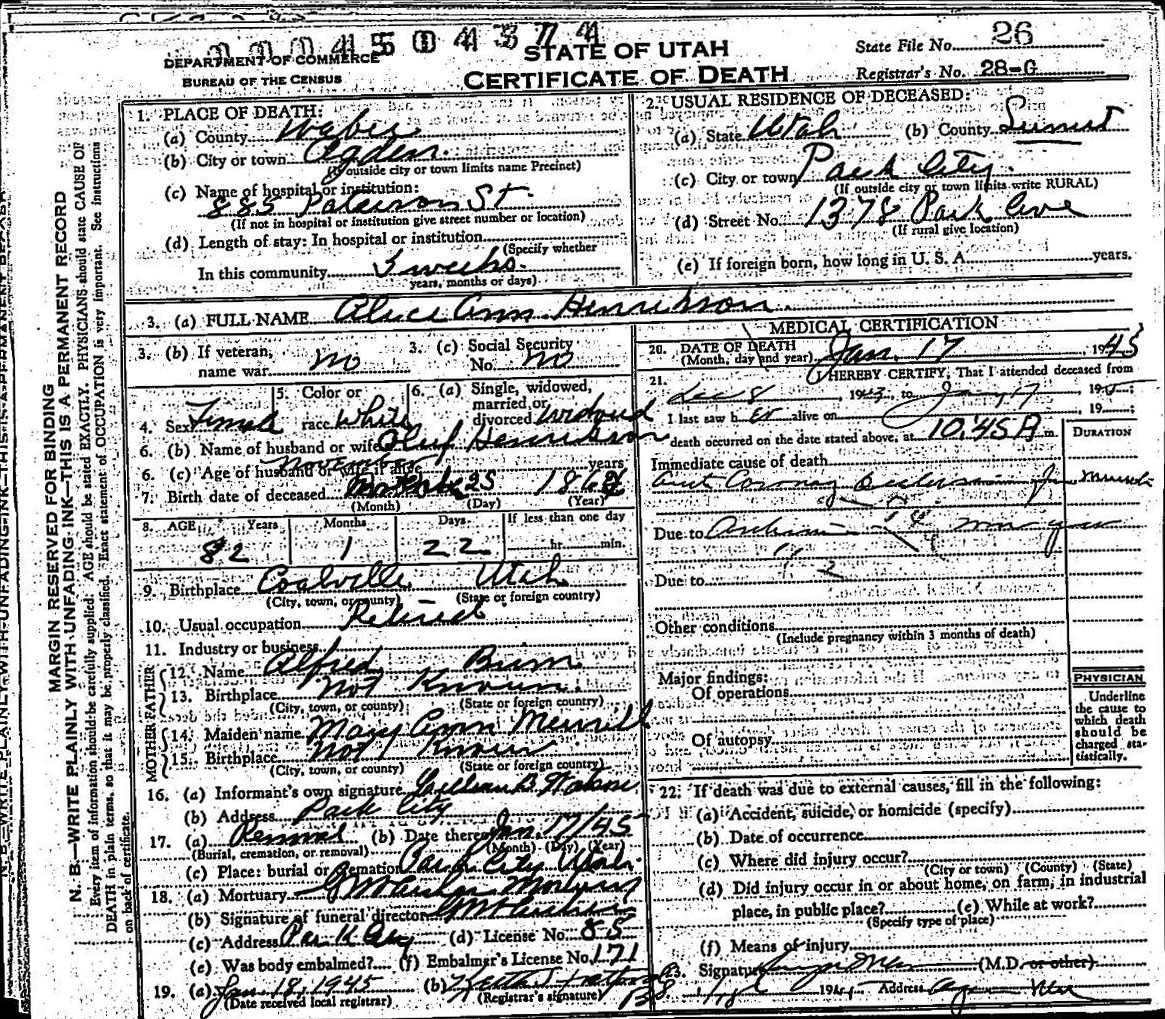 STATE OF UTAH
CERTIFICATE OF DEATH
DEPARTMENT OF COMMERCE
BUREAU OF THE CENSUS
State File No. 26
Registrar's No. 28-G
MARGIN RESERVED FOR BINDING
N. B.—WRITE PLAINLY WITH UNFADING INK—THIS IS A PERMANENT RECORD
Every item of information should be carefully supplied. AGE should be stated EXACTLY. PHYSICIANS should state CAUSE OF
DEATH in plain terms, so that it may be properly classified. Exact statement of OCCUPATION is very important. See instructions
on back of certificate.
1. PLACE OF DEATH:
(a) County Weber
(b) City or town Ogden
(If outside city or town limits name Precinct)
(c) Name of hospital or institution:
885 Paterson St.
(If not in hospital or institution give street number or location)
(d) Length of stay: In hospital or institution
(Specify whether
In this community 3 weeks.
years, months or days)
2. USUAL RESIDENCE OF DECEASED:
(a) State Utah (b) County Summit
(c) City or town Park City.
(If outside city or town limits write RURAL)
(d) Street No. 1378 Park Ave
(If rural give location)
(e) If foreign born, how long in U. S. A. years.
3. (a) FULL NAME Alice Ann Henrikson
3. (b) If veteran, name war no
3. (c) Social Security No. no
4. Sex Female 5. Color or race White 6. (a) Single, widowed, married, or divorced Widowed
6. (b) Name of husband or wife Oluf Henrikson
6. (c) Age of husband or wife if alive years
7. Birth date of deceased 25 186
(Month) (Day) (Year)
8. AGE Years Months Days If less than one day
82 1 22 hr. min.
9. Birthplace Coalville Utah
(City, town, or county) (State or foreign country)
10. Usual occupation Retired
11. Industry or business
FATHER
12. Name Alfred
13. Birthplace Not Known
(City, town, or county) (State or foreign country)
MOTHER
14. Maiden name Mary Ann Merrill
15. Birthplace Not Known
(City, town, or county) (State or foreign country)
16. (a) Informant's own signature
(b) Address Park City
17. (a) Removal (b) Date thereof Jan. 17/45
(Burial, cremation, or removal) (Month) (Day) (Year)
(c) Place: burial or cremation Park City Utah
18. (a) Mortuary
(b) Signature of funeral director
(c) Address Park City (d) License No. 85
(e) Was body embalmed? (f) Embalmer's License No. 171
19. (a) Jan 18, 1945 (b)
(Date received local registrar) (Registrar's signature)
MEDICAL CERTIFICATION
20. DATE OF DEATH
(Month, day and year) Jan. 17, 1945
21. I HEREBY CERTIFY, That I attended deceased from
Dec 8 1943, to Jan 17 19
I last saw h er alive on , 19
death occurred on the date stated above, at 10:45 A m.
DURATION
Immediate cause of death
Coronary
Due to
Due to
Other conditions
(Include pregnancy within 3 months of death)
Major findings:
Of operations
Of autopsy
PHYSICIAN
Underline
the cause to
which death
should be
charged sta-
tistically.
22. If death was due to external causes, fill in the following:
(a) Accident, suicide, or homicide (specify)
(b) Date of occurrence
(c) Where did injury occur?
(City or town) (County) (State)
(d) Did injury occur in or about home, on farm, in industrial
place, in public place? (e) While at work?
(Specify type of place)
(f) Means of injury
23. Signature (M.D. or other)
Address